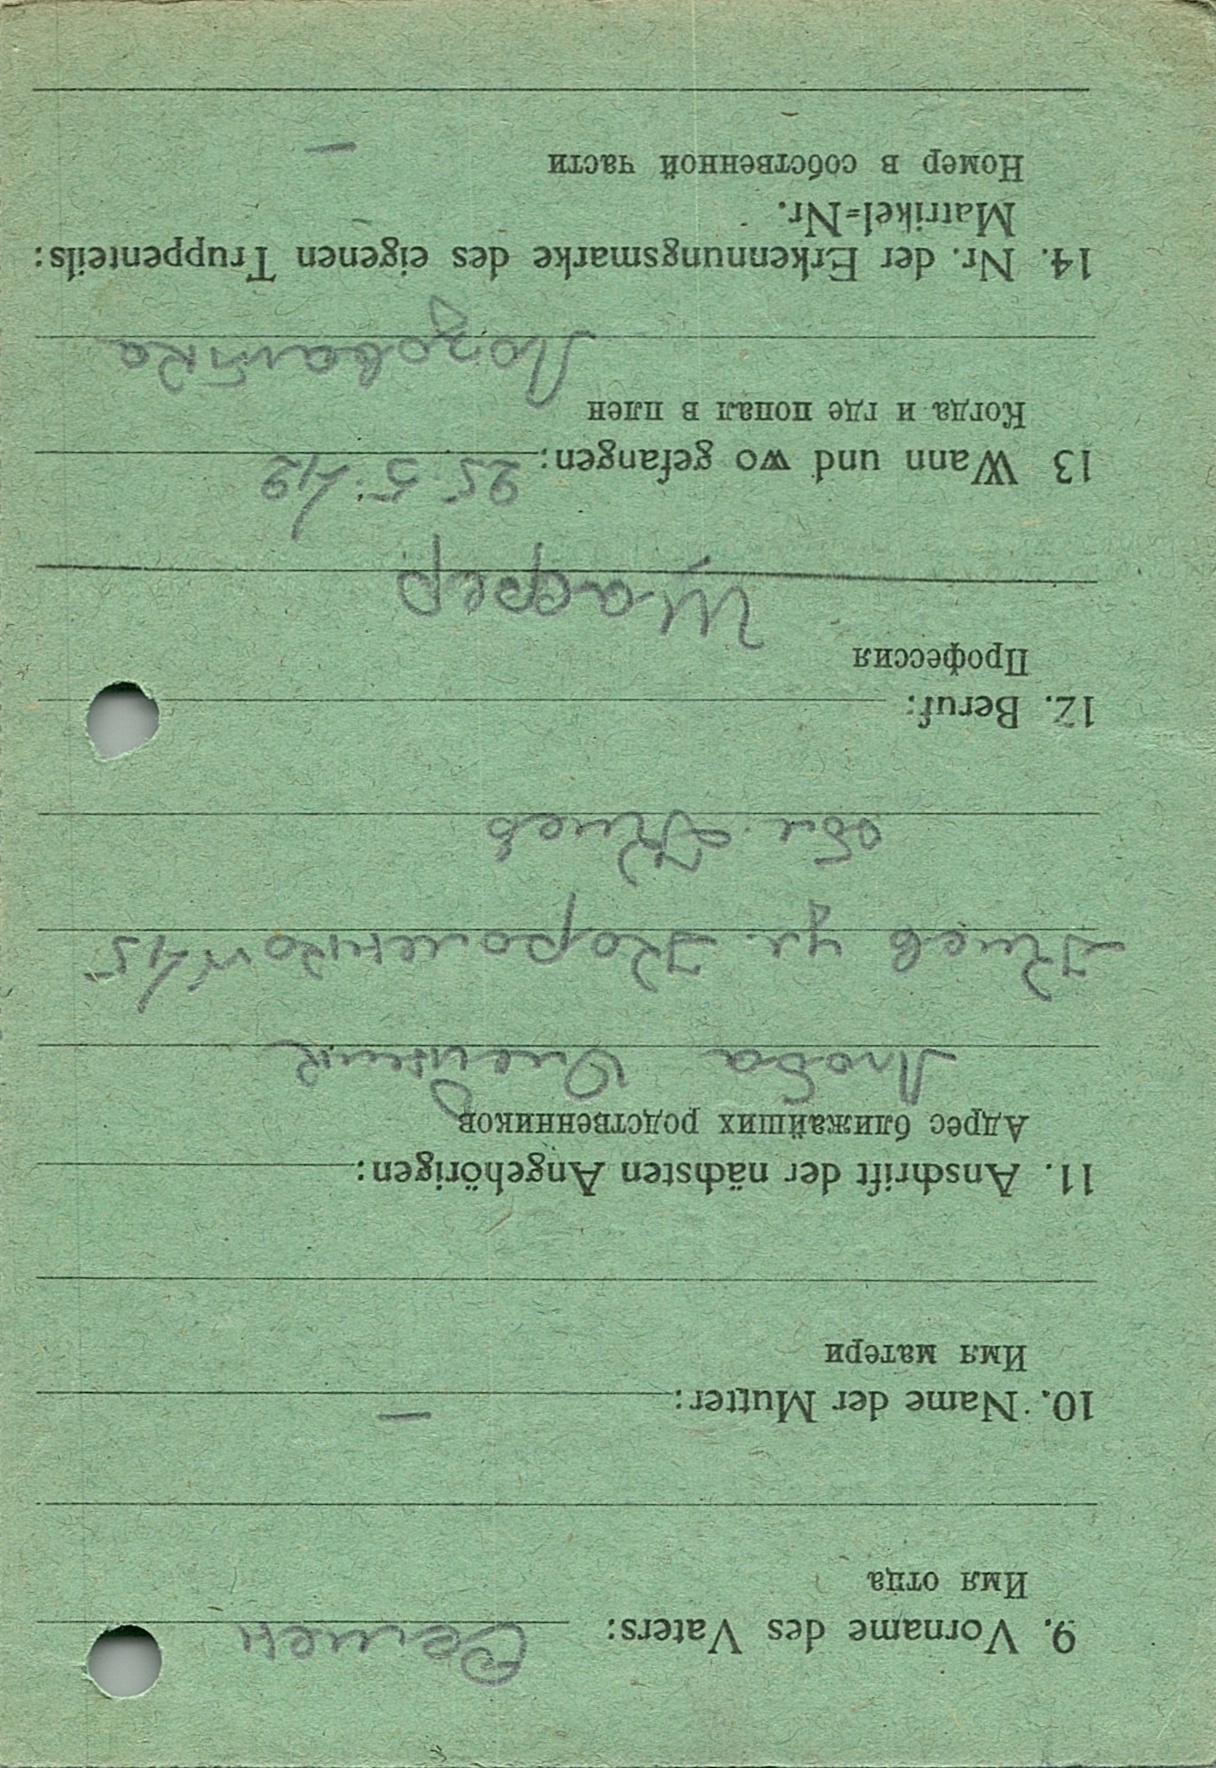 9. Vorname des Vaters: Семен
Имя отца
10. Name der Mutter: —
Имя матери
11. Anschrift der nächsten Angehörigen:
Адрес ближайших родственников
Люба
Киев ул. Короленко № 15
обл Киев
12. Beruf:
Профессия
Шофер
13 Wann und wo gefangen: 25. 5. 42
Когда и где попал в плен
Лозоватка
14. Nr. der Erkennungsmarke des eigenen Truppenteils:
Matrikel=Nr.
Номер в собственной части —